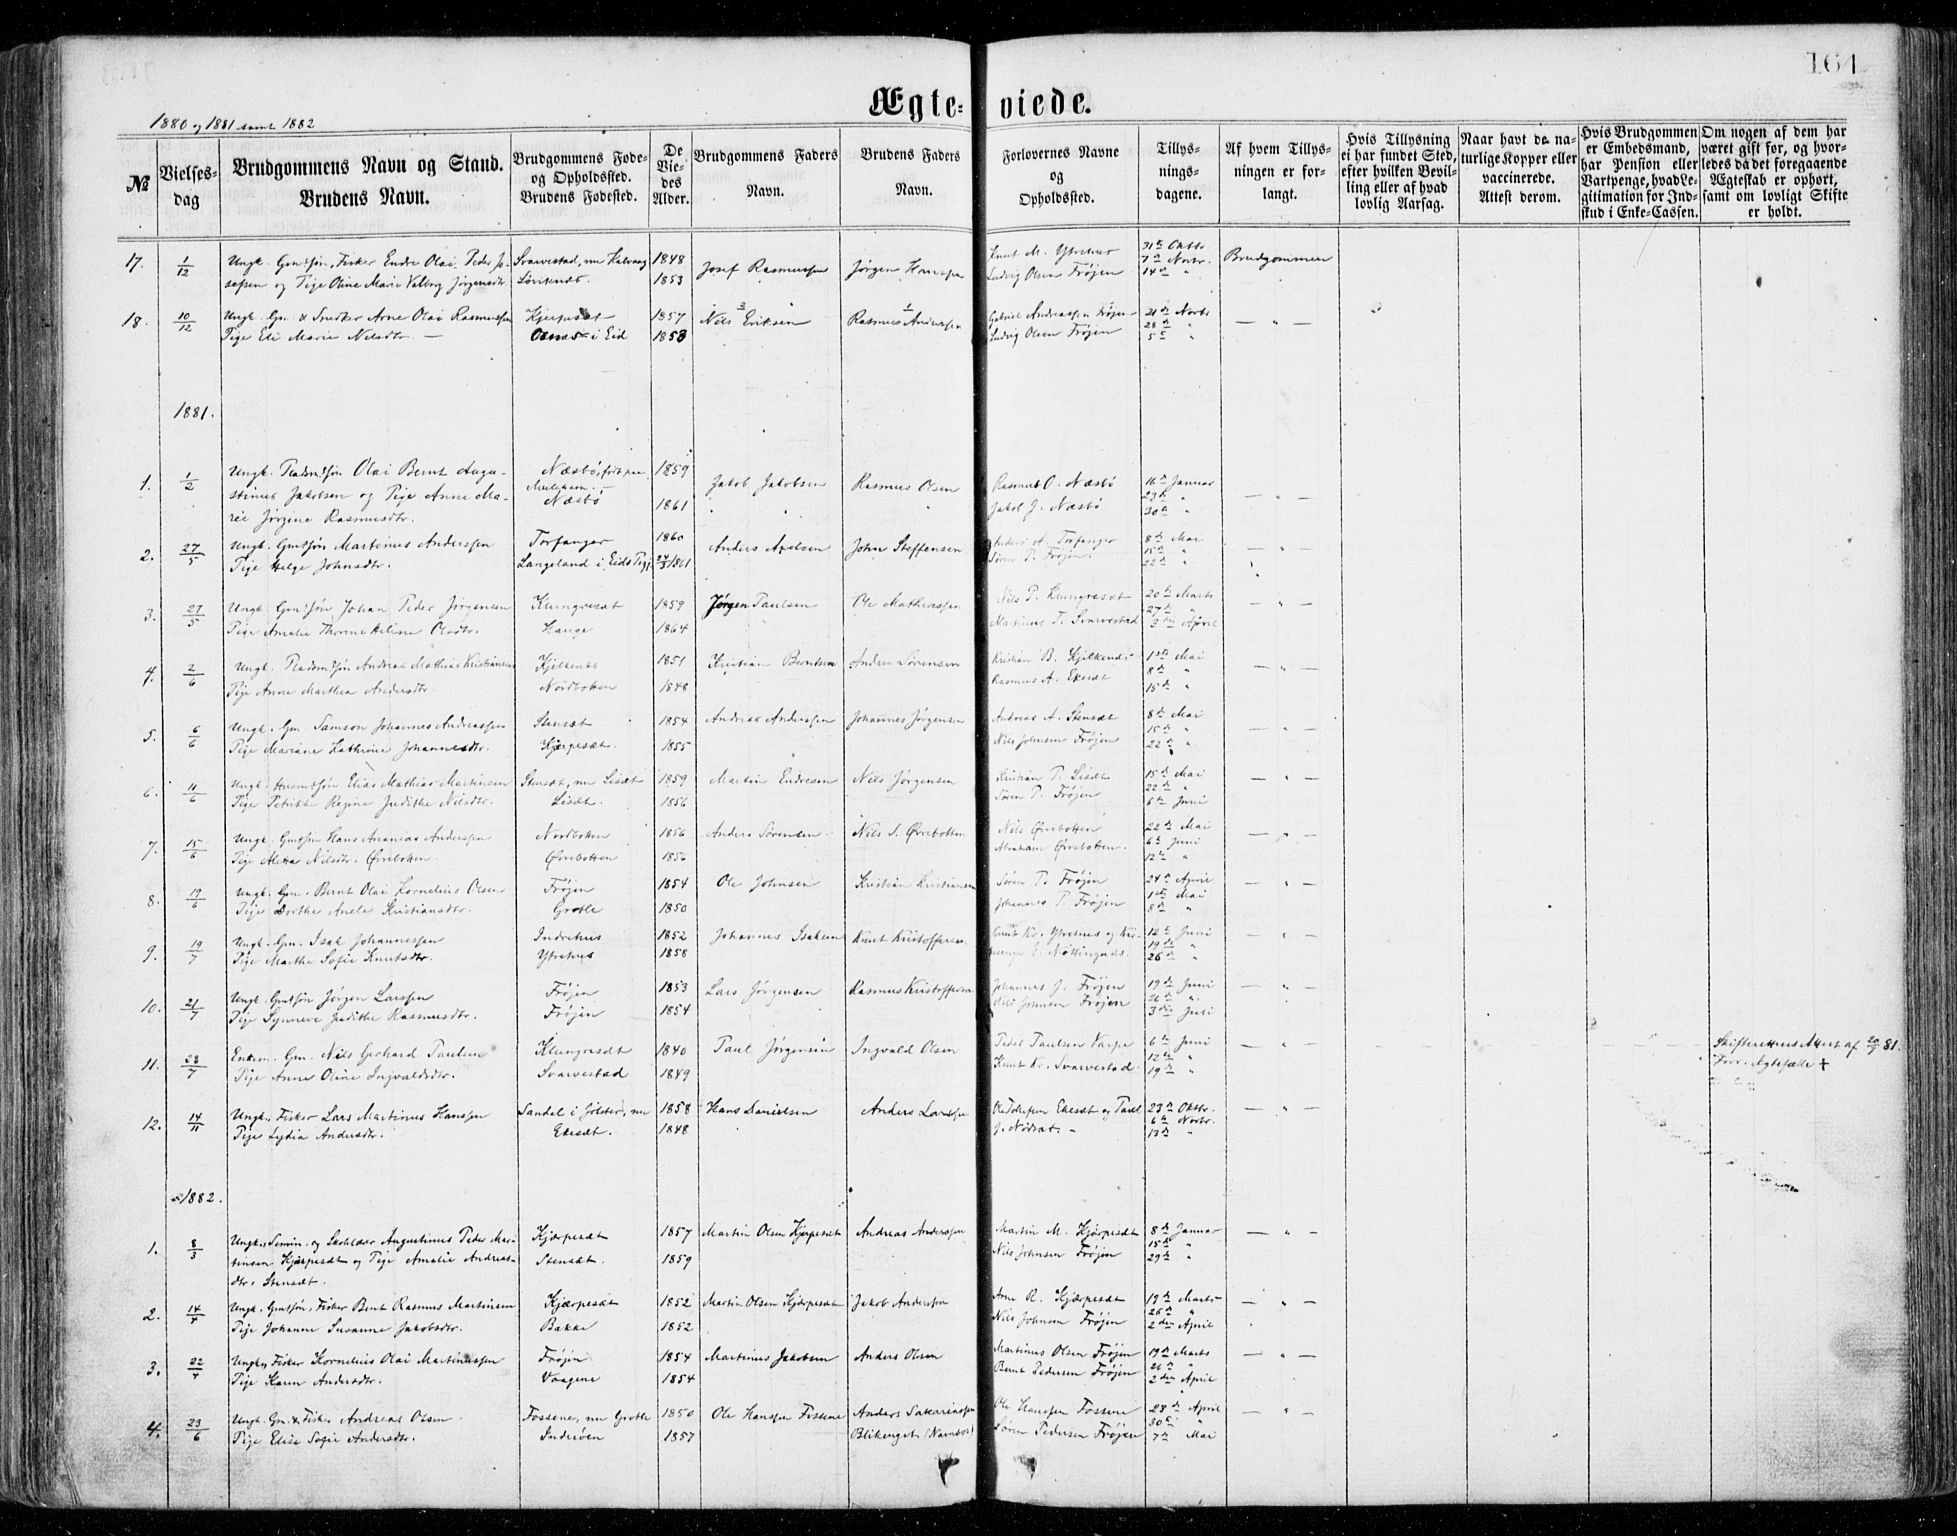 164
Ægte- viede.
1880 og 1881 samt 1882
№
Vielses-
dag
Brudgommens Navn og Stand.
Brudens Navn.
Brudgommens Føde-
og Opholdssted.
Brudens Fødested.
De
Vie-
des
Alder.
Brudgommens Faders
Navn.
Brudens Faders
Navn.
Forlovernes Navne
og
Opholdssted.
Tillys-
nings-
dagene.
Af hvem Tillys-
ningen er for-
langt.
Hvis Tillysning
ei har fundet Sted,
efter hvilken Bevil-
ling eller af hvad
lovlig Aarsag.
Naar havt de na-
turlige Kopper eller
vaccinerede.
Attest derom.
Hvis Brudgommen
er Embedsmand,
har Pension eller
Vartpenge, hvad Le-
gitimation for Ind-
skud i Enke-Cassen.
Om nogen af dem har
været gift før, og hvor-
ledes da det foregaaende
Ægteskab er ophørt,
samt om lovligt Skifte
er holdt.
17. 1/12 Ungk. Gmtsøn, Fisker Endre Olai Peder Jo- Svarvestad, nu Halvaag 1848 Josef Rasmussen Jørgen Hanssen Knut M. Ytrehus 31te Oktbr. Brudgommen
sefsen og Pige Oline Marie Valborg Jørgensdtr. 1853 Ludvig Olsen Frøjen 7de Novbr.
14de "
18. 10/12 Ungk. Gm. & Snedker Arne Olai Rasmussen Kjerpesæt 1857 Nils Eriksen Rasmus Andersen Gabriel Andreassen Frøjen 21de Novbr. — " —
Pige Eli Marie Nilsdtr. — i Eid 1853 Ludvig Olsen Frøjen 28de "
5te "
1881.
1. 1/2 Ungk. Pladsmdsøn Olai Bernt Augu- Næsbø, 1859 Jakob Jakobsen Rasmus Olsen Rasmus O. Næsbø 16de Januar — " —
stinus Jakobsen og Pige Anne Ma- Næsbø 1861 Jakob J. Næsbø 23de "
rie Jørgine Rasmusdtr. 30te "
2. 27/5 Ungk. Gmtsøn Martinus Anderssen Torfanger 1860 Anders Axelsen John Steffensen Anders A. Torfanger 8de Mai — " —
Pige Helge Johnsdtr. Langeland i Eids Pgj. 24/3 1861 Søren P. Frøjen 15de "
22de "
3. 27/5 Ungk. Gmtsøn Johan Peder Jørgensen Klungresæt 1859 Jørgen Paulsen Ole Mathiassen Nils P. Klungresæt 20de Marts — " —
Pige Amalie Thorine Helene Olsdtr. Hauge 1864 Martinus T. Svarvestad 27de "
3die April
4. 2/6 Ungk. Pladsmdsøn Andreas Mathias Kristiansen Kjelkenæs 1851 Kristian Berntsen Anders Sørensen Kristian B. Kjelkenæs 1ste Mai — " —
Pige Anne Marthea Andersdtr. Nordbotten 1848 Rasmus A. Ekesæt 8de "
15de "
5. 6/6 Ungk. Gm. Samson Johannes Andreassen Stensæt 1854 Andreas Anderssen Johannes Jørgensen Andreas A. Stensæt 8de Mai — " —
Pige Mariane Kathrine Johannesdtr. Kjerpesæt. 1855 Nils Johnsen Frøjen 15de "
22de "
6. 11/6 Ungk. Husmdsøn Elias Mathias Martinsen Stensæt, nu Lisæt 1859 Martin Endresen Nils Jørgensen Kristian P. Lisæt 15de Mai — " —
Pige Petrikke Regine Judithe Nilsdtr. Lisæt. 1856 Søren P. Frøjen 22de "
6te Juni
7. 15/6 Ungk. Gmtsøn Hans Ananias Anderssen Nordbotten 1856 Anders Sørensen Nils S. Øvrebotten Nils Øvrebotten 22de Mai — " —
Pige Nilsdtr. Øvrebotten. Øvrebotten 1856 Abraham Øvrebotten. 6te Juni
12te "
8. 19/6 Ungk. Gm. Bernt Olai Kornelius Olsen Frøjen 1854 Ole Johnsen Kristian Kristiansen Søren P. Frøjen 24de April — " —
Pige Dorthe Anele Kristiansdtr. Grotle 1850 Johannes P. Frøjen 1ste Mai
8de "
9. 19/7 Ungk. Gm. Isak Johannessen Indrehus 1852 Johannes Isaksen Knut Kristoffersen Knut Kr. Ytrehus og 12te Juni — " —
Pige Marthe Sofie Knutsdtr. Ytrehus 1858 19de "
26de "
10. 21/7 Ungk. Gmtsøn Jørgen Larssen Frøjen 1853 Lars Jørgensen Rasmus Kristoffersen Johannes J. Frøjen 19de Juni — " —
Pige Synneve Judithe Rasmusdtr. Frøjen 1854 Nils Johnsen Frøjen 26de "
3die Juli
11. 28/7 Enkem. Gm. Nils Gerhard Paulsen Klungresæt 1840 Paul Jørgensen Ingvald Olsen Peder Paulsen Varpe 6te Juni — " — Skifterettens Attest af 20/7 81.
Pige Anne Oline Ingvaldsdtr. Svarvestad 1849 Knut Kr. Svarvestad. 12te " Forr. Ægtefælle +
19de "
12. 14/11 Ungk., Fisker Lars Martinus Hanssen Sandal i Jølster, nu 1858 Hans Danielsen Anders Larssen Ole Tollefsen Ekesæt og Paul 23de Oktbr. — " —
Pige Lydia Andersdtr. Ekesæt. 1848 6te Novbr.
13de "
1882.
1. 8/3 Ungk., Semin. og Skolelærer Augustinus Peder Mar- Kjærpesæt 1857 Martin Olsen Kjerpesæt Andreas Anderssen Martin M. Kjørpesæt 8de Januar — " —
tinsen Kjærpesæt og Pige Amalie Andreas- Stensæt. 1859 Nils Johnsen Frøjen 15de "
dtr. Stensæt. 29de "
2. 14/4 Ungk. Gmtsøn, Fisker Bent Rasmus Martinsen Kjærpesæt 1852 Martin Olsen Kjørpesæt Jakob Andersen Arne R. Kjærpesæt 19de Marts — " —
Pige Johanne Susanne Jakobsdtr. Bakke 1852 Nils Johnsen Frøjen 26de "
2den April
3. 22/4 Ungk., Fisker Kornelius Olai Martinussen Frøjen 1854 Martinus Jakobsen Anders Olsen Martinus Olsen Frøjen 19de Marts — " —
Pige Karen Andersdtr. Vaagene 1854 Bernt Pedersen Frøjen 26de "
2den April
4. 23/6 Ungk. Gm. & Fisker Andreas Olsen Fossene, nu Grotle 1850 Ole Hanssen Fossene Anders Sakariassen Ole Hanssen Fossene 23de April — " —
Pige Elise Sofie Andersdtr. Indrøen 1857 Blikenget Søren Pedersen Frøjen 30te "
7de Mai